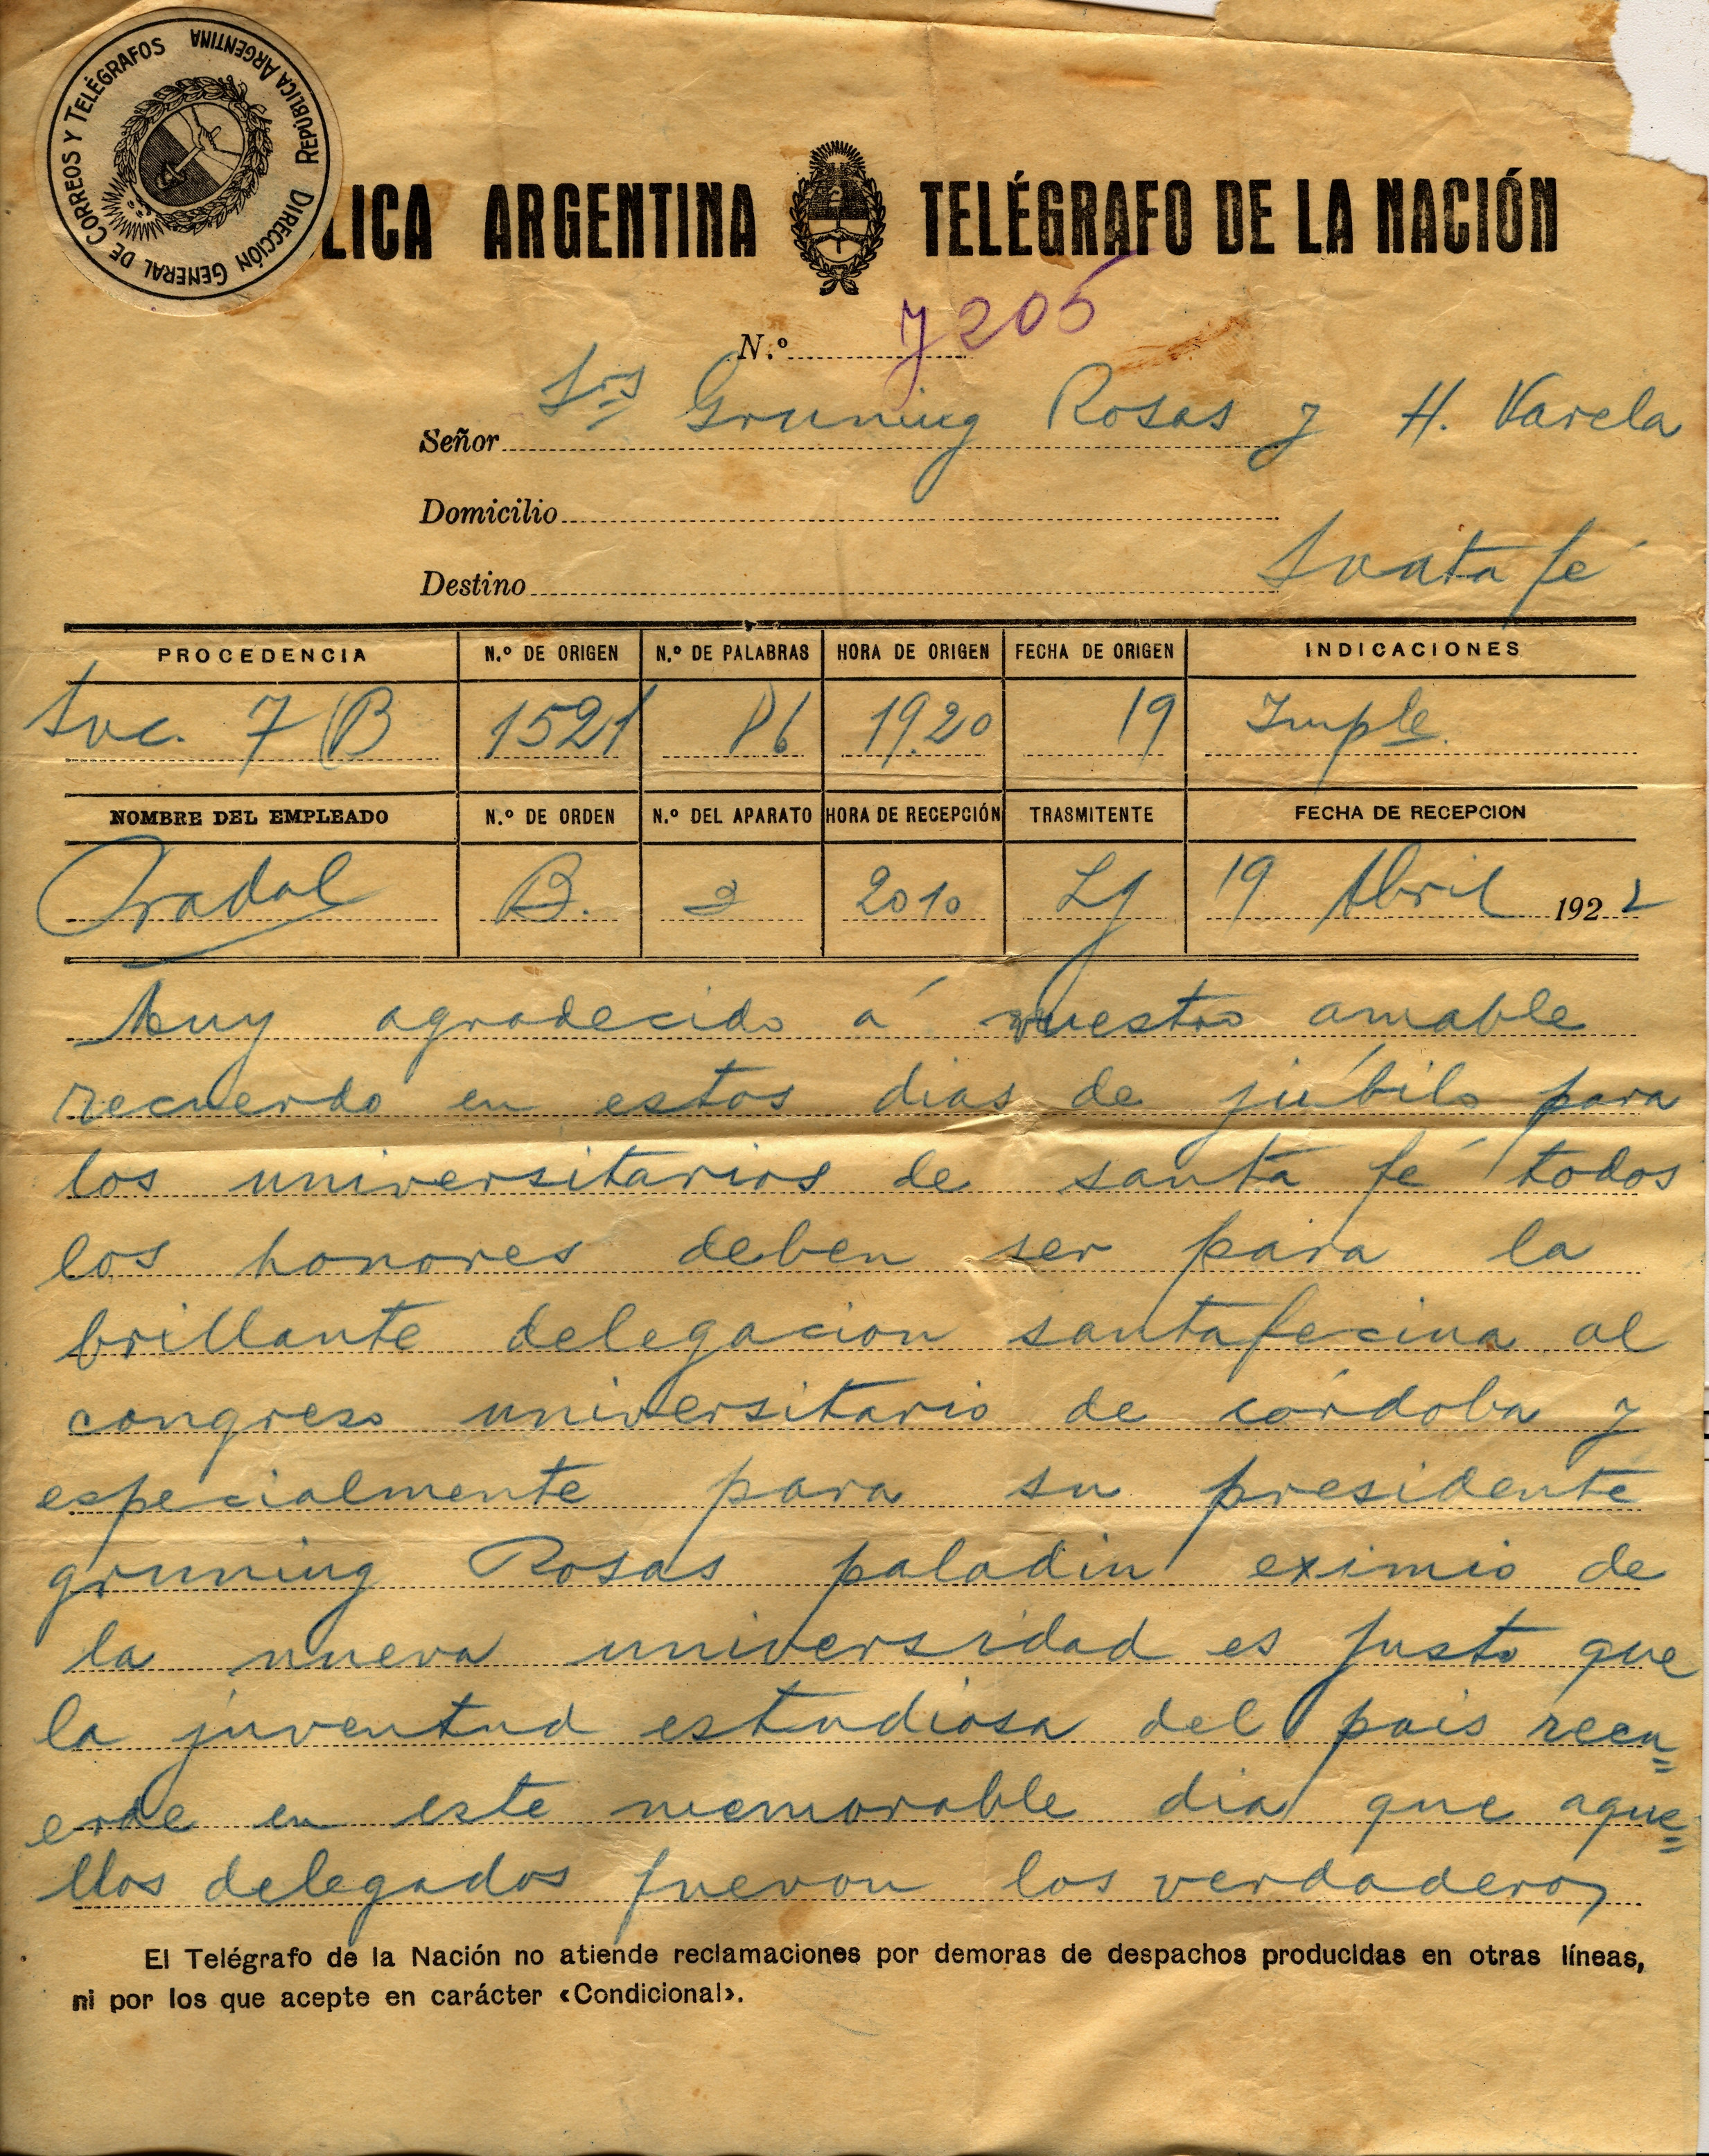 DIRECCIÓN GENERAL DE CORREOS Y TELÉGRAFOS REPÚBLICA ARGENTINA
LICA ARGENTINA TELÉGRAFO DE LA NACIÓN
N.º 7205
Señor Srs Gruning Rosas y H. Varela
Domicilio
Destino Santa fé
PROCEDENCIA N.º DE ORIGEN N.º DE PALABRAS HORA DE ORIGEN FECHA DE ORIGEN INDICACIONES
Suc. 7 (B 1521 86 19.20 19 Imple.
NOMBRE DEL EMPLEADO N.º DE ORDEN N.º DEL APARATO HORA DE RECEPCIÓN TRASMITENTE FECHA DE RECEPCION
Pradal B. 2 2010 Lg 19 Abril 1922
Muy agradecido á vuestro amable
recuerdo en estos dias de júbilo para
los universitarios de santa fé todos
los honores deben ser para la
brillante delegacion santafecina al
congreso universitario de córdoba y
especialmente para su presidente
gruning Rosas paladin eximio de
la nueva universidad es justo que
la juventud estudiosa del pais recu=
erde en este memorable dia que aque=
llos delegados fueron los verdaderos
El Telégrafo de la Nación no atiende reclamaciones por demoras de despachos producidas en otras líneas,
ni por los que acepte en carácter «Condicional».